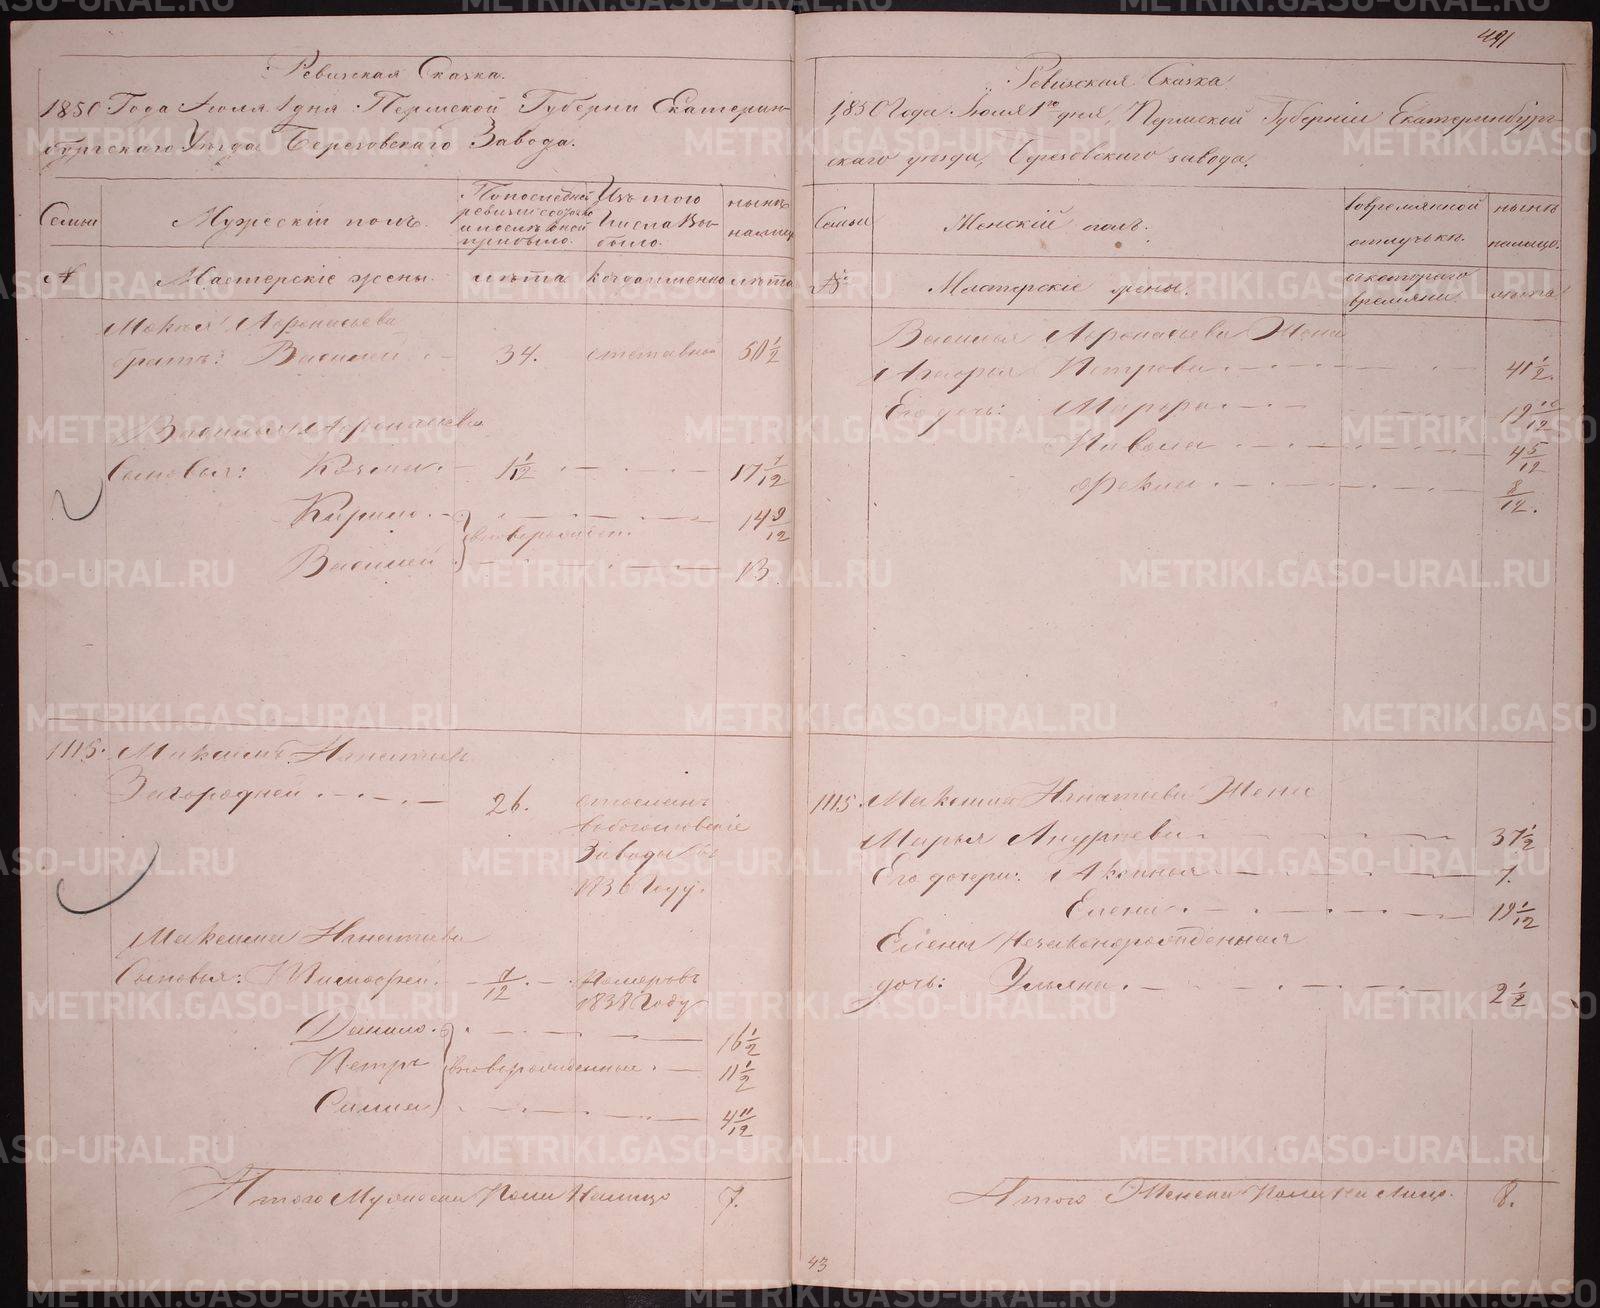 Ревизская Сказка.
1850 Года Июля 1 дня Пермской Губернии Екатерин-
бургскаго Уезда Березовскаго Завода.
Семьи
Мужескiй полъ.
По последней
ревизiи состояло
и после оной
прибыло.
Изъ того
числа Вы-
было.
ныне
налицо
№
Мастерскiе жены.
лета
когда именно
лета
Афонасьева
братъ: Василей
34.
отставной
50 1/2
Василья Афонасьева
Сыновья: Козма
1 1/12
17 7/12
Кирило
14 9/12
вновьрожден.
Василей
13
1115. Максимъ Игнатьевъ
Загородней
26.
отосланъ
в богословскiе
Заводы въ
1836 Году.
Максима Игнатьева
Сыновья: Тимофей.
7/12
Померъ въ
1838 Году
Данило
16 1/2
Петръ
вновьрожденные
11 1/2
4 11/12
Итого Мужеска Пола На лицо
7.
491
Ревизская Сказка
1850 Года Июля 1го дня, Пермской Губернiи Екатеринбург-
скаго уезда, Березовскаго завода.
Семьи
Женскiй полъ.
во временной
отлучке.
ныне
налицо.
№
Мастерскiе жены.
съ котораго
времяни
лета
Василья Афонасьева Жена
Петрова
41 1/2.
Его дочь: Марфа
19 10/12
4 5/12
Фекла
8/12.
1115. Максима Игнатьева Жена
Марья Андреева
37 1/2
Его дочери: Аксинья
7.
Елена
19 1/12
Елены Незаконорожденная
дочь: Ульяна
2 1/2
Итого Женска Пола На Лицо.
8.
43
METRIKI.GASO-URAL.RU